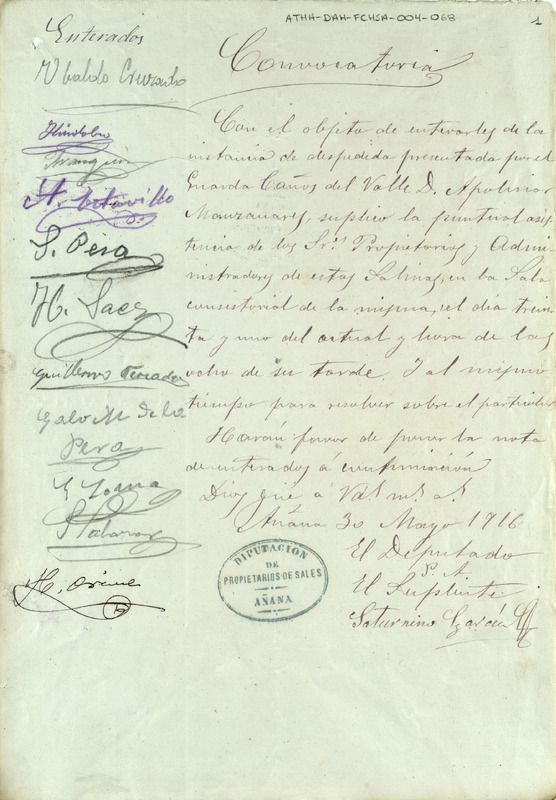 ATHA-DAH-FCHSA-004-068
1
Enterados
Convocatoria
Ubaldo Cruzado
Con el objeto de enterarles de la
instancia de despedida presentada por el
Guarda Caños del Valle D. Apolinar
Manzanares, suplico la puntual asis
tencia de los Srs Propietarios y Admi-
nistradores de estas Salinas, en la Sala
consistorial de la misma, el día trein
ta y uno del actual y hora de las
ocho de su tarde. Y al mismo
tiempo para resolver sobre el particular
Harán favor de poner la nota
de enterados á continuación
Dios gue á Vds ms as
Añana 30 Mayo 1916
El Diputado
P. A.
El Suplente
Saturnino García
S. Pesa
H. Saez
Guillermo
Galo M de la
Pera
DIPUTACION
DE
PROPIETARIOS DE SALES
AÑANA